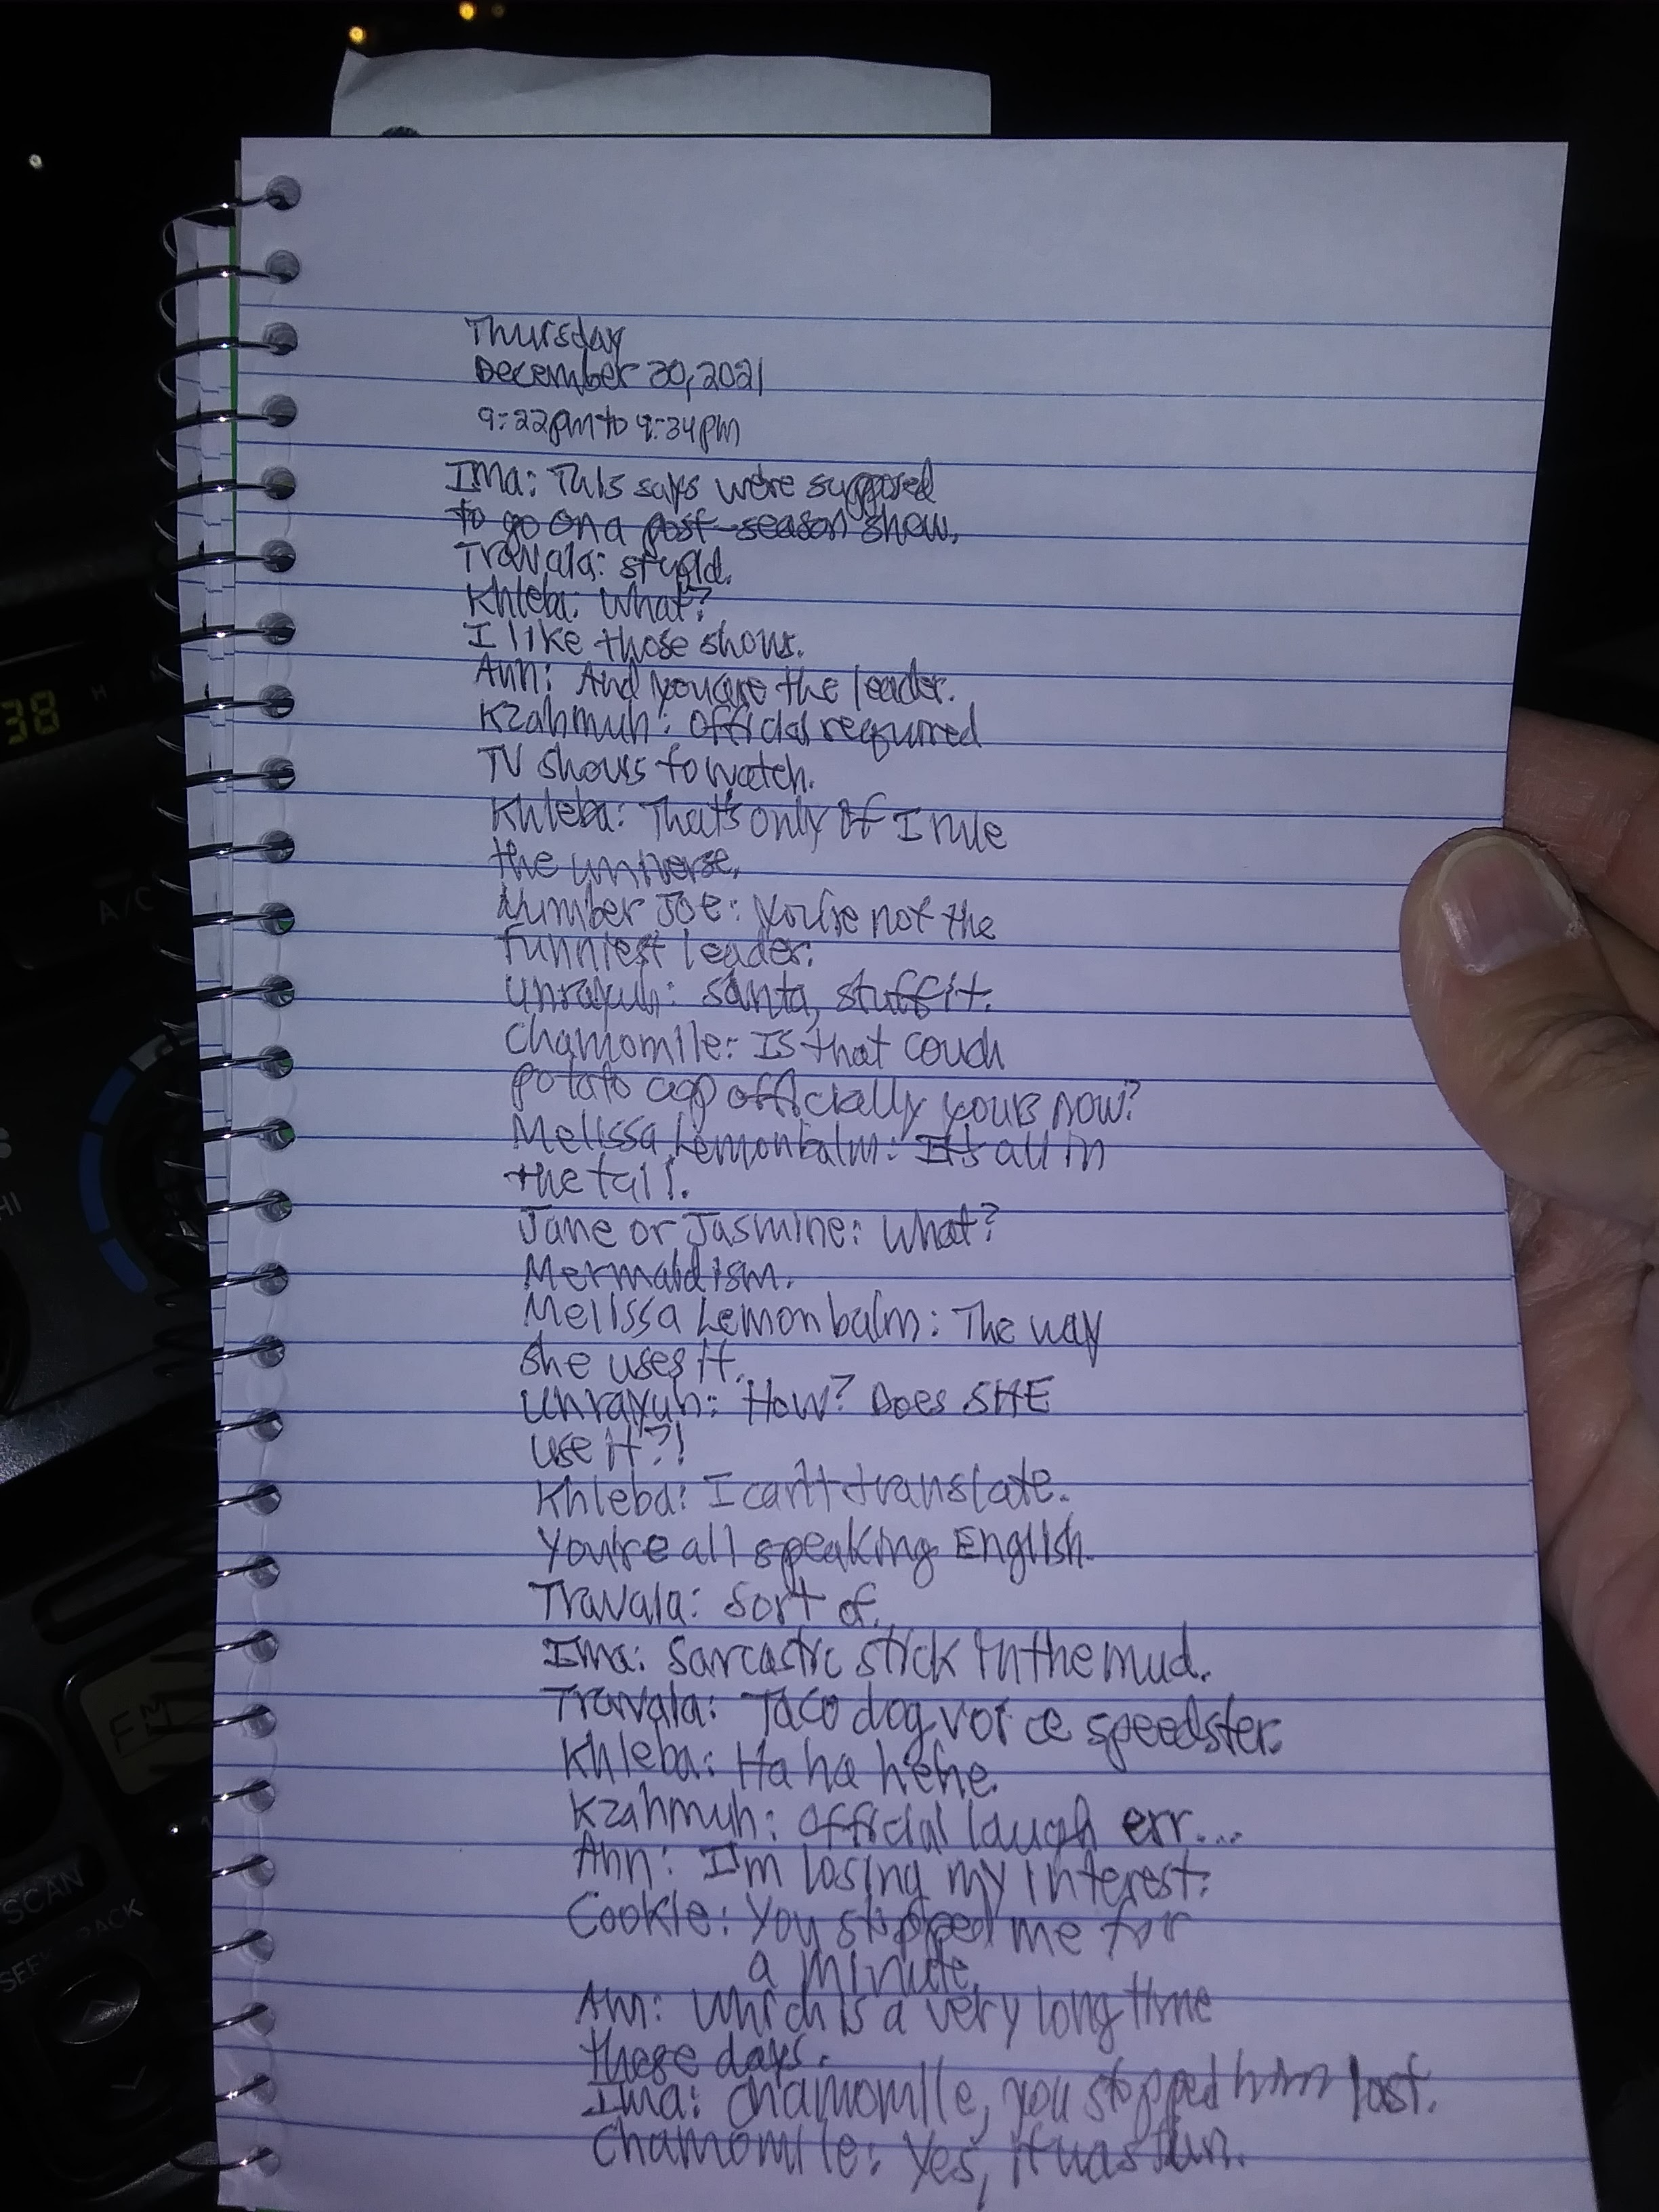 Thursday
December 30, 2021
9:22pm to 9:34pm
Ima: This says we're supposed
to go on a post-season show.
Travala: stupid.
Khleba: What?
I like those shows.
Ann: And you are the leader.
Kzahmuh: official required
TV shows to watch.
Khleba: That's only if I rule
the universe.
Number Joe: You're not the
funniest leader.
Unrayuh: Santa, stuff it.
Chamomile: Is that couch
potato cap officially yours now?
Melissa Lemonbalm: It's all in
the tail.
Jane or Jasmine: What?
Mermaidism.
Melissa Lemonbalm: The way
she uses it.
Unrayuh: How? Does SHE
use it?!
Khleba: I can't translate.
You're all speaking English.
Travala: Sort of.
Ima: Sarcastic stick in the mud.
Travala: Taco dog voice speedster.
Khleba: Ha ha hehe.
Kzahmuh: official laugh err...
Ann: I'm losing my interest.
Cookie: You stopped me for
a minute.
Ann: Which is a very long time
these days.
Ima: Chamomile, you stopped him last.
Chamomile: Yes, it was fun.
38
A/C
HI
FM
SCAN
SEEK